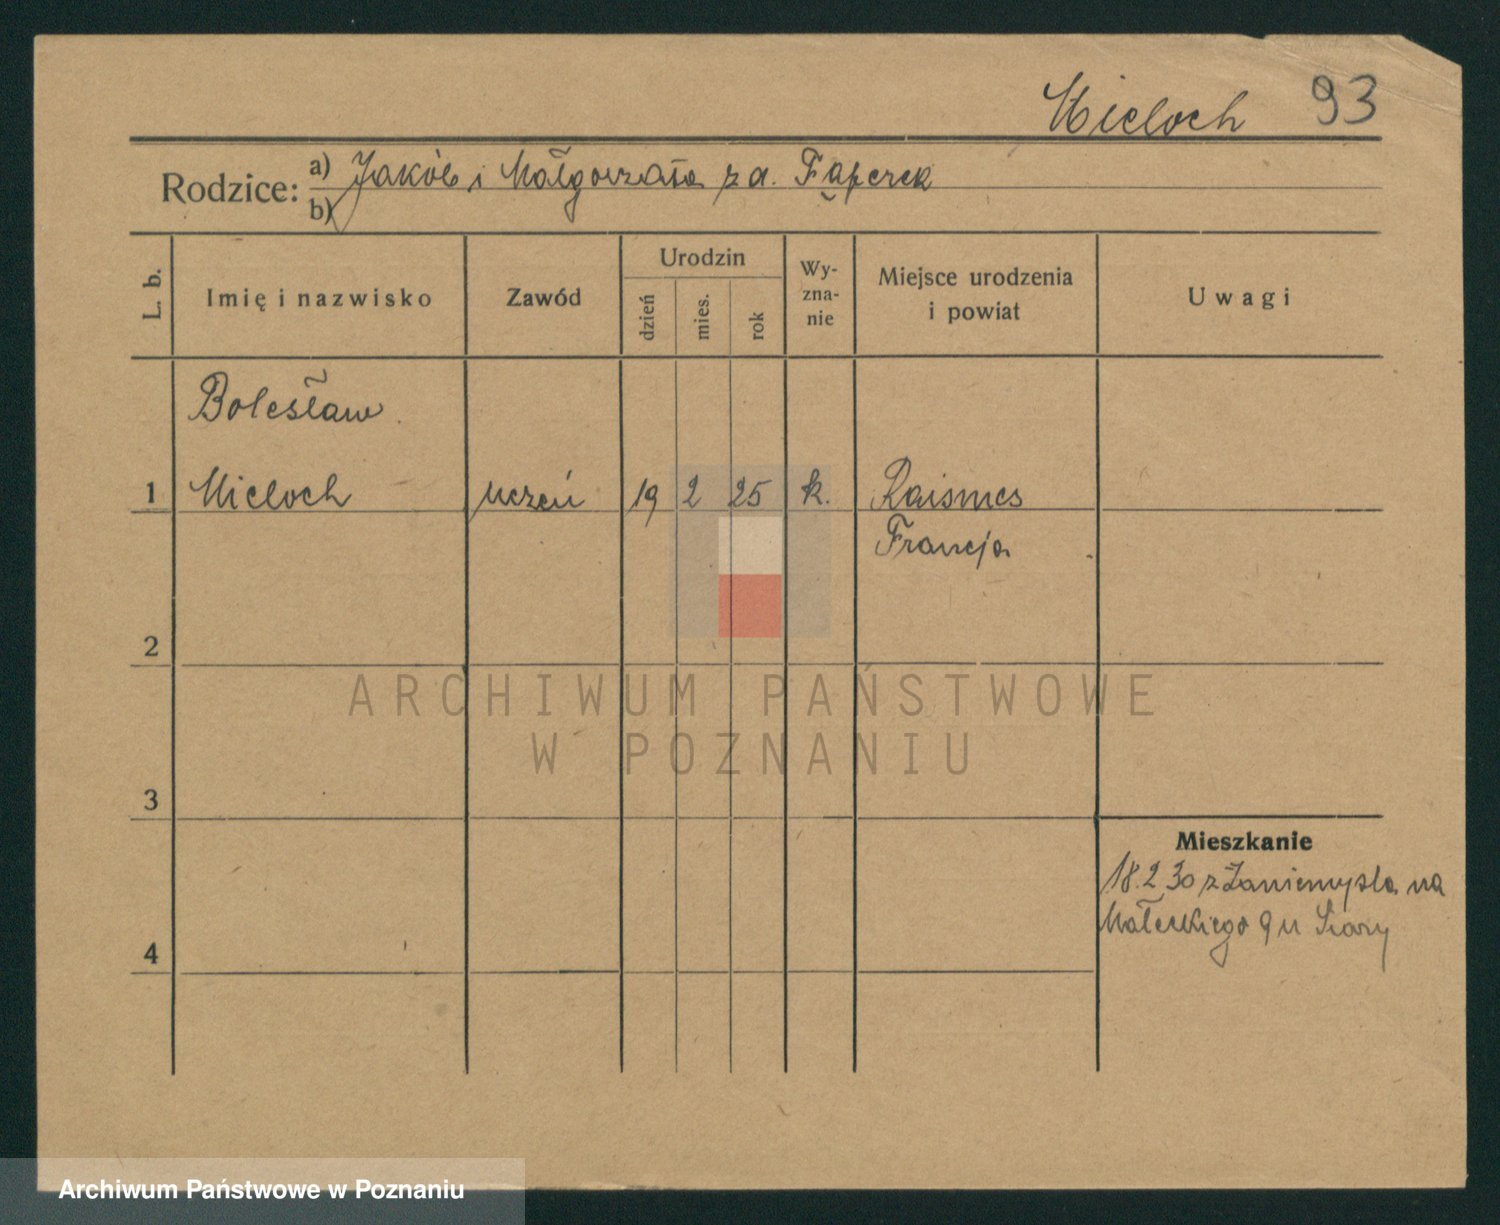 Mieloch 93
Rodzice: a) Jakób i Małgorzata z d.
b)
L. b.
Imię i nazwisko
Zawód
Urodzin
dzień
mies.
rok
Wy-
zna-
nie
Miejsce urodzenia
i powiat
Uwagi
Bolesław
1 Mieloch uczeń 19 2 25 k. Raismes
Francja
2
3
4
Mieszkanie
18.2 30 z Zaniemyśla na
Małeckiego 9 u
ARCHIWUM PAŃSTWOWE
W POZNANIU
Archiwum Państwowe w Poznaniu